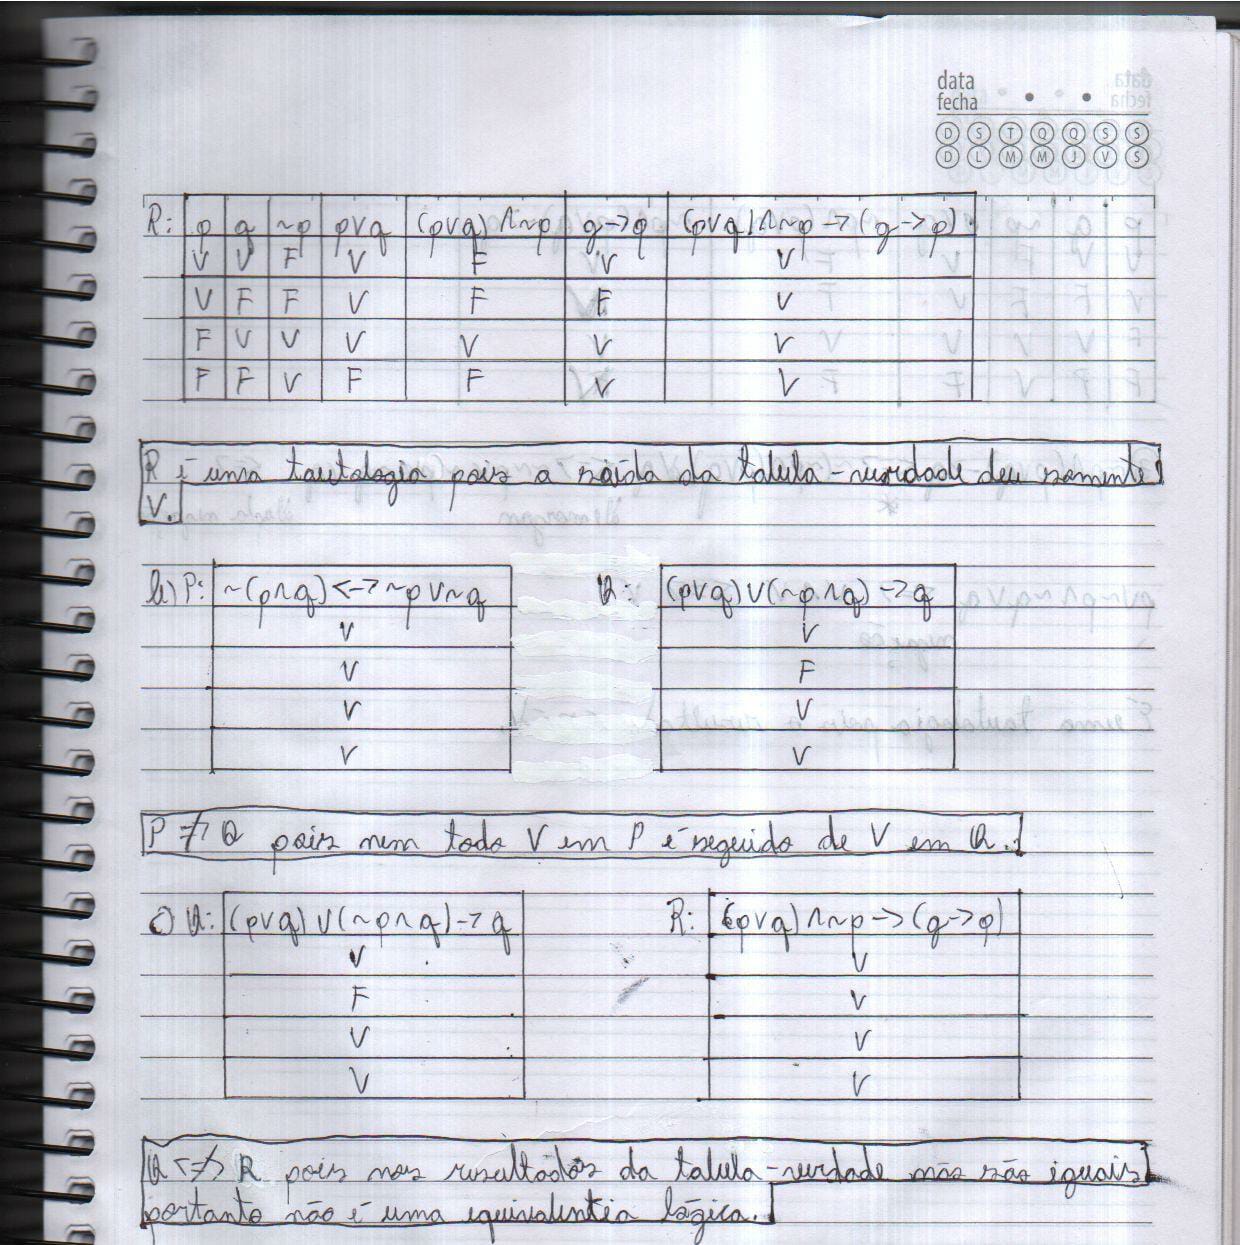 data
fecha
D S T Q Q S S
D L M M J V S
R: p q ~p p∨q (p∨q)∧~p q→p (p∨q)∧~p→(q→p)
V V F V F V V
V F F V F F V
F V V V V V V
F F V F F V V
R é uma tautologia pois a saída da tabela-verdade deu somente
V.
b) P: ~(p∧q)<->~p∨~q Q: (p∨q)∨(~p∧q)->q
V V
V F
V V
V V
P ⇏ Q pois nem todo V em P é seguido de V em Q.
c) Q: (p∨q)∨(~p∧q)->q R: (p∨q)∧~p->(q->p)
V V
F V
V V
V V
Q <≠> R pois nos resultados da tabela-verdade não são iguais
portanto não é uma equivalentia lógica.